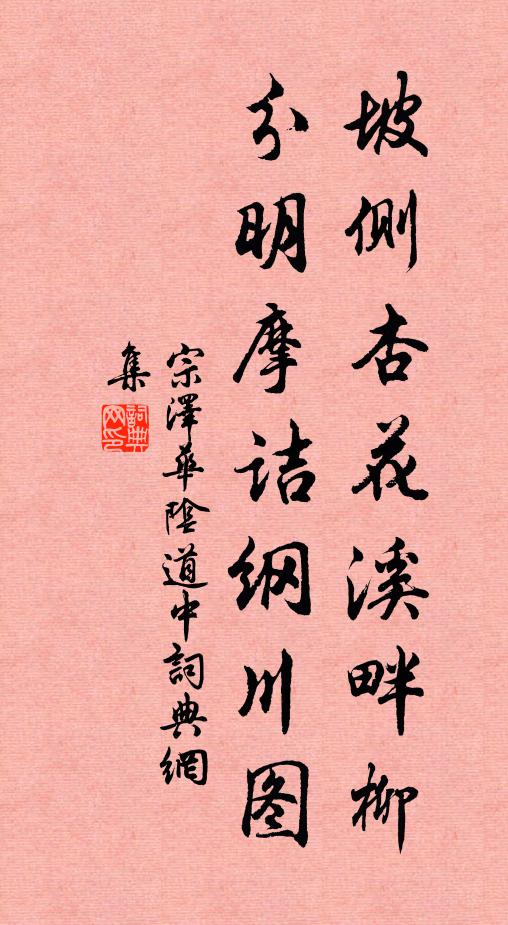 坡侧杏花溪畔柳
分明摩诘纲川图
宗澤華陰道中詞典網
集
詞典网印